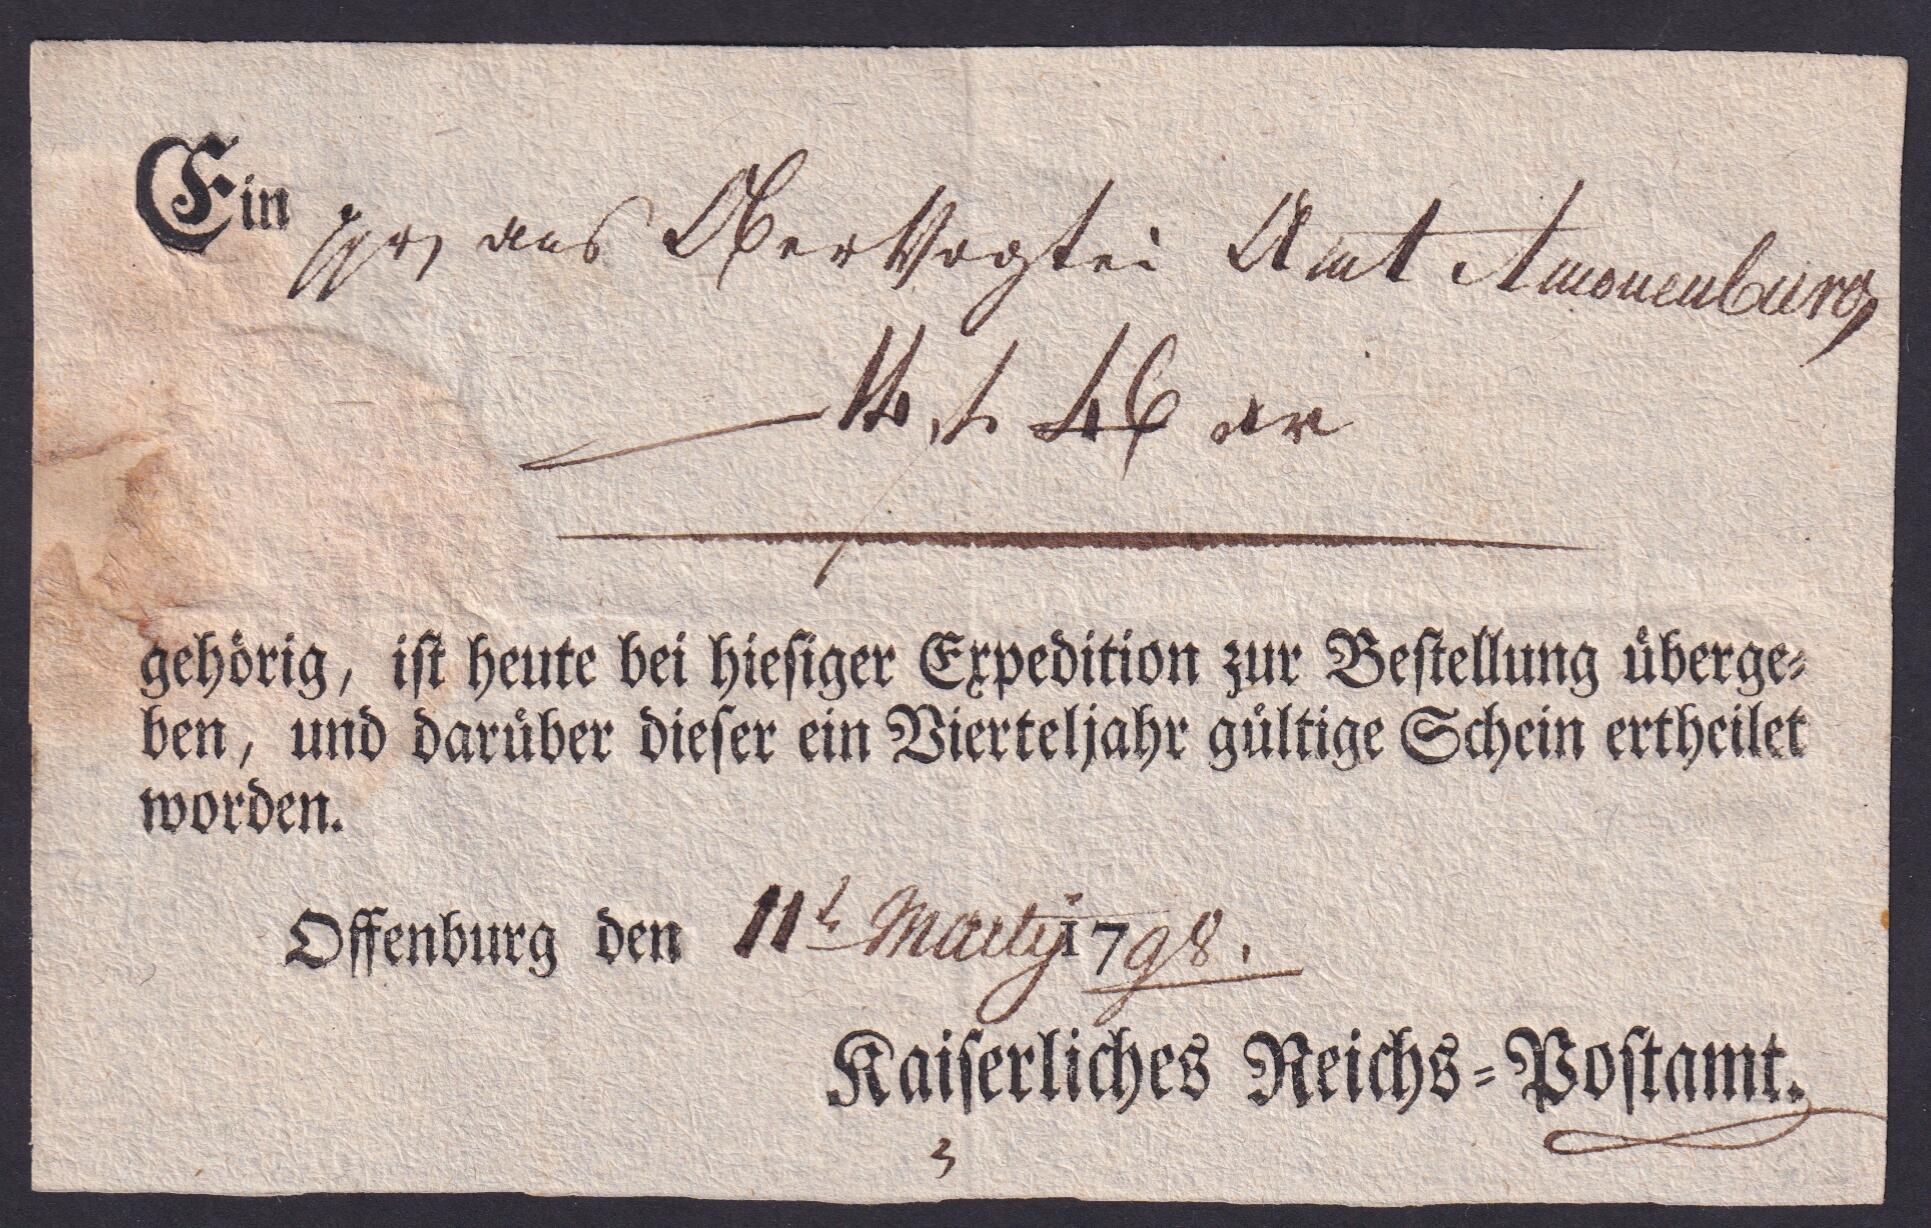 Ein aus Ober Vogtei Amt Amonenburg
46 xr
gehörig, ist heute bei hiesiger Expedition zur Bestellung überge⸗
ben, und darüber dieser ein Vierteljahr gültige Schein ertheilet
worden.
Offenburg den 11t Martij 1798.
Kaiserliches Reichs⸗Postamt.
3